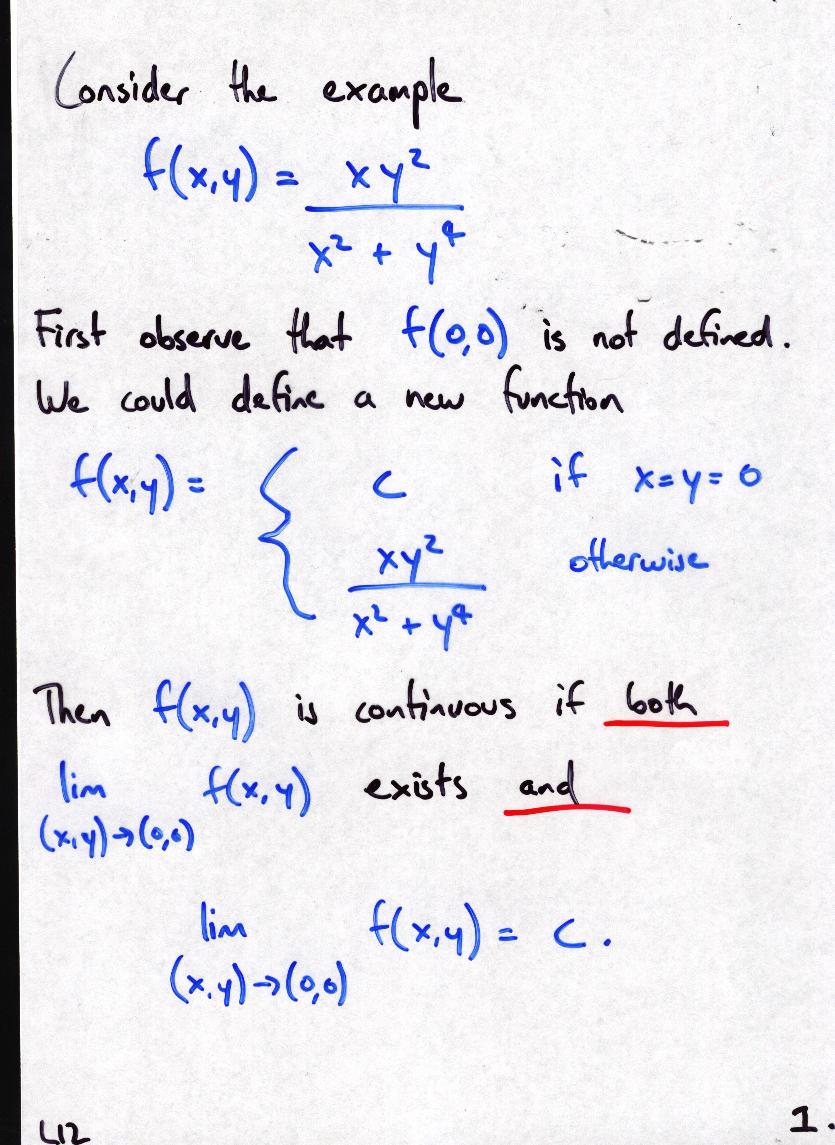 Consider the example
f(x,y) = xy² / (x² + y⁴)
First observe that f(0,0) is not defined.
We could define a new function
f(x,y) = { c if x=y=0
xy² / (x² + y⁴) otherwise
Then f(x,y) is continuous if both
lim (x,y)→(0,0) f(x,y) exists and
lim (x,y)→(0,0) f(x,y) = c.
L12
1.